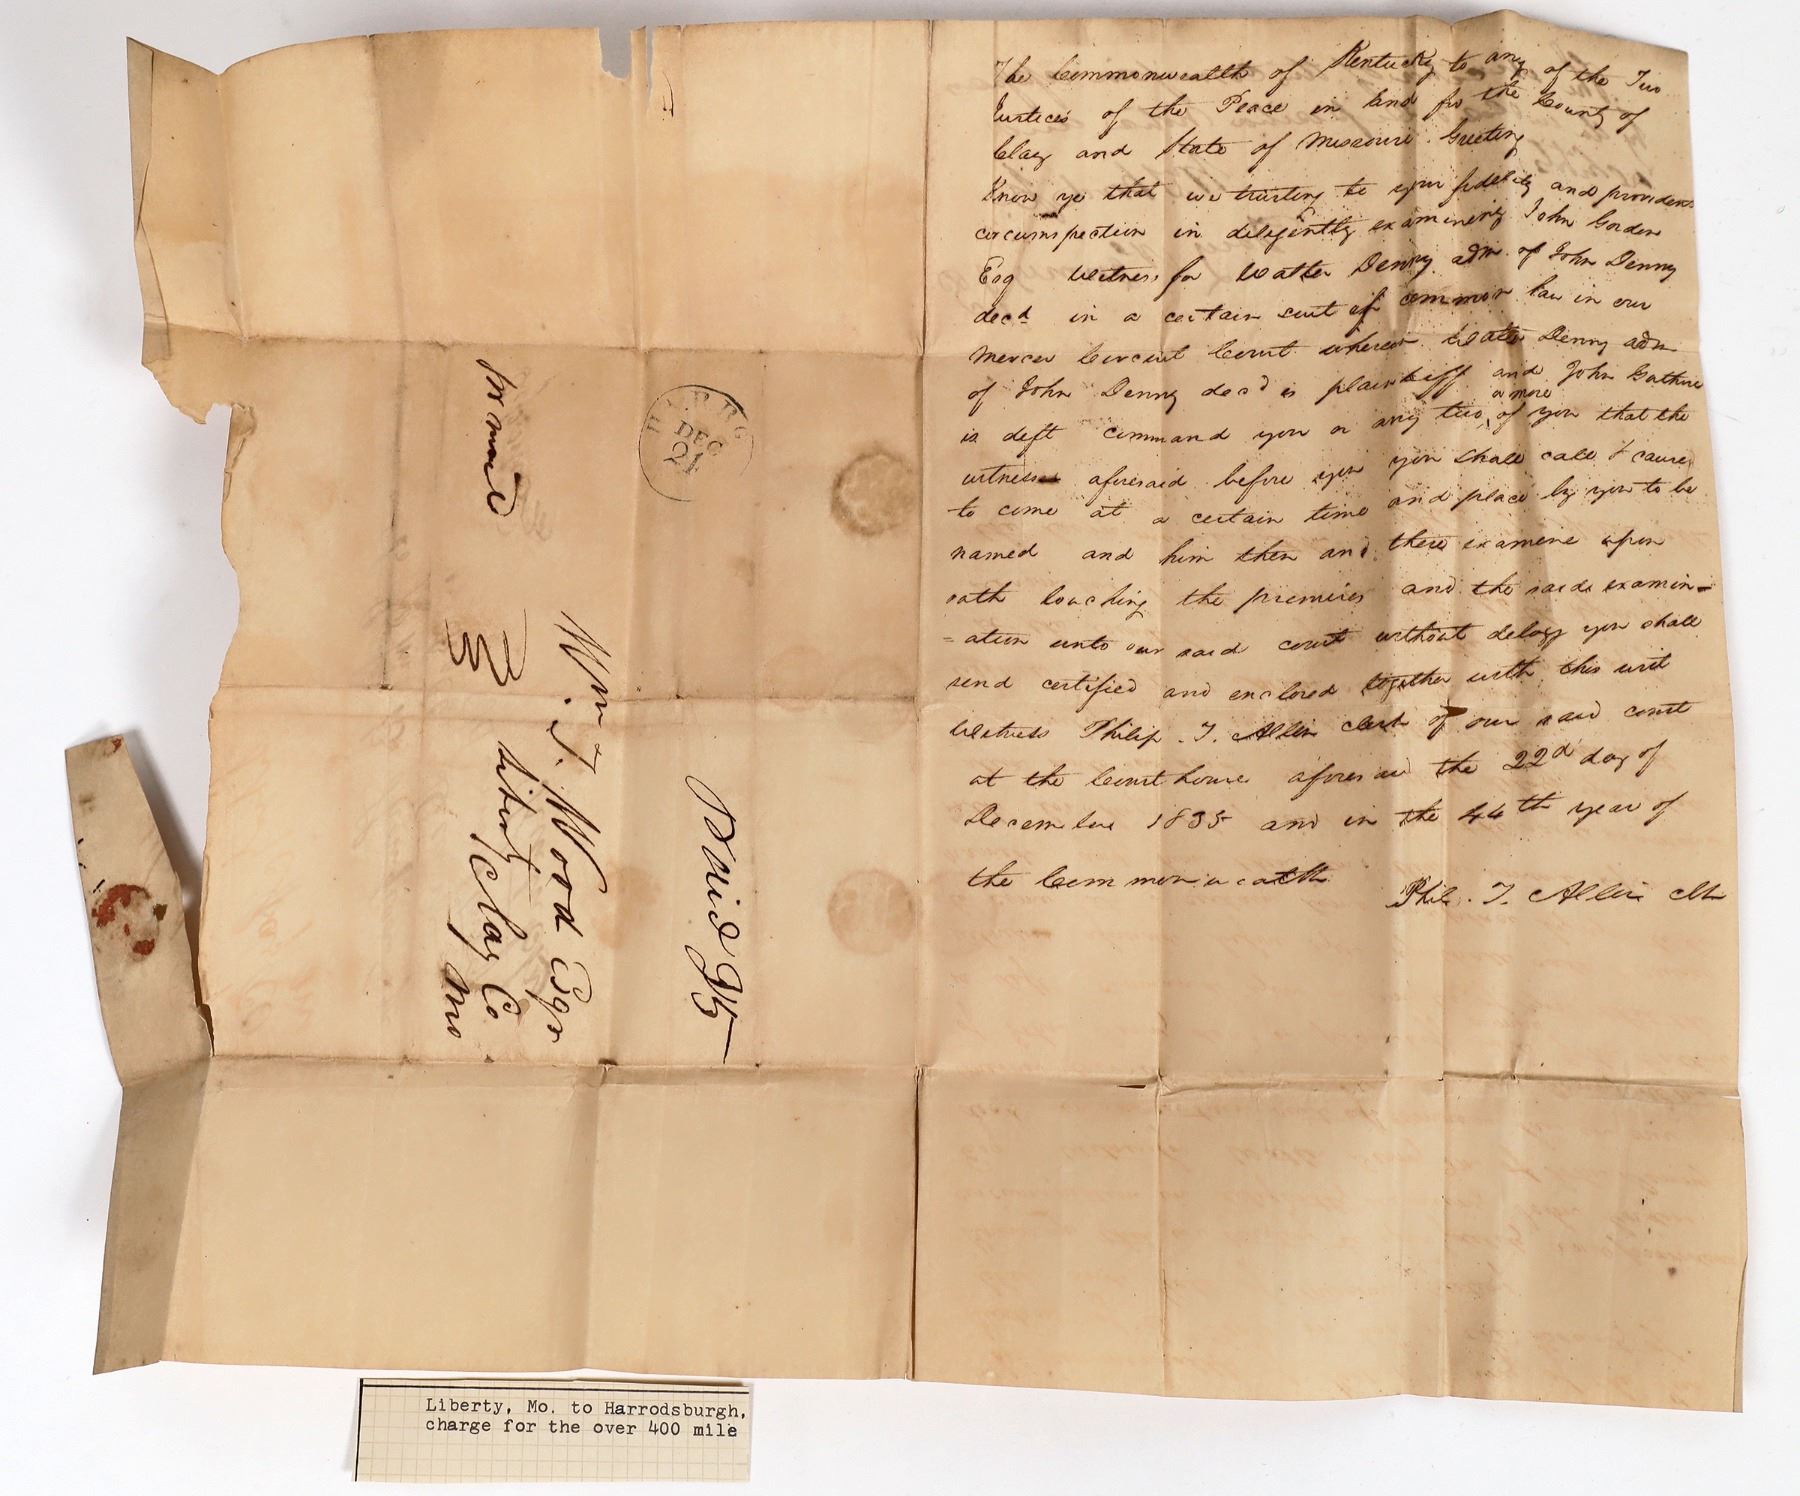 The Commonwealth of Kentucky to any of the Two
Justices of the Peace in and for the County of
Clay and State of Missouri Greeting
Know ye that we trusting to your fidelity and provident
circumspection in diligently examining John Gordon
Esq witness for Walter Denny adm. of John Denny
decd in a certain suit of common law in our
Mercer Circuit Court wherein Walter Denny adm
of John Denny decd is plaintiff and John
or more
is deft command you or any two of you that the
witness aforesaid before you you shall call & cause
to come at a certain time and place by you to be
named and him then and there examine upon
oath touching the premises and the said examin-
=ation unto our said court without delay you shall
send certified and enclosed together with this writ
Witness Philip T. Allin clerk of our said court
at the Courthouse aforesaid the 22d day of
December 1835 and in the 44th year of
the Commonwealth
Phil. T. Allin Clk
H. B R G
DEC
21
Paid
Wm. T. Wood Esqr
Liberty
Clay Co
Mo
Liberty, Mo. to Harrodsburgh,
charge for the over 400 mile